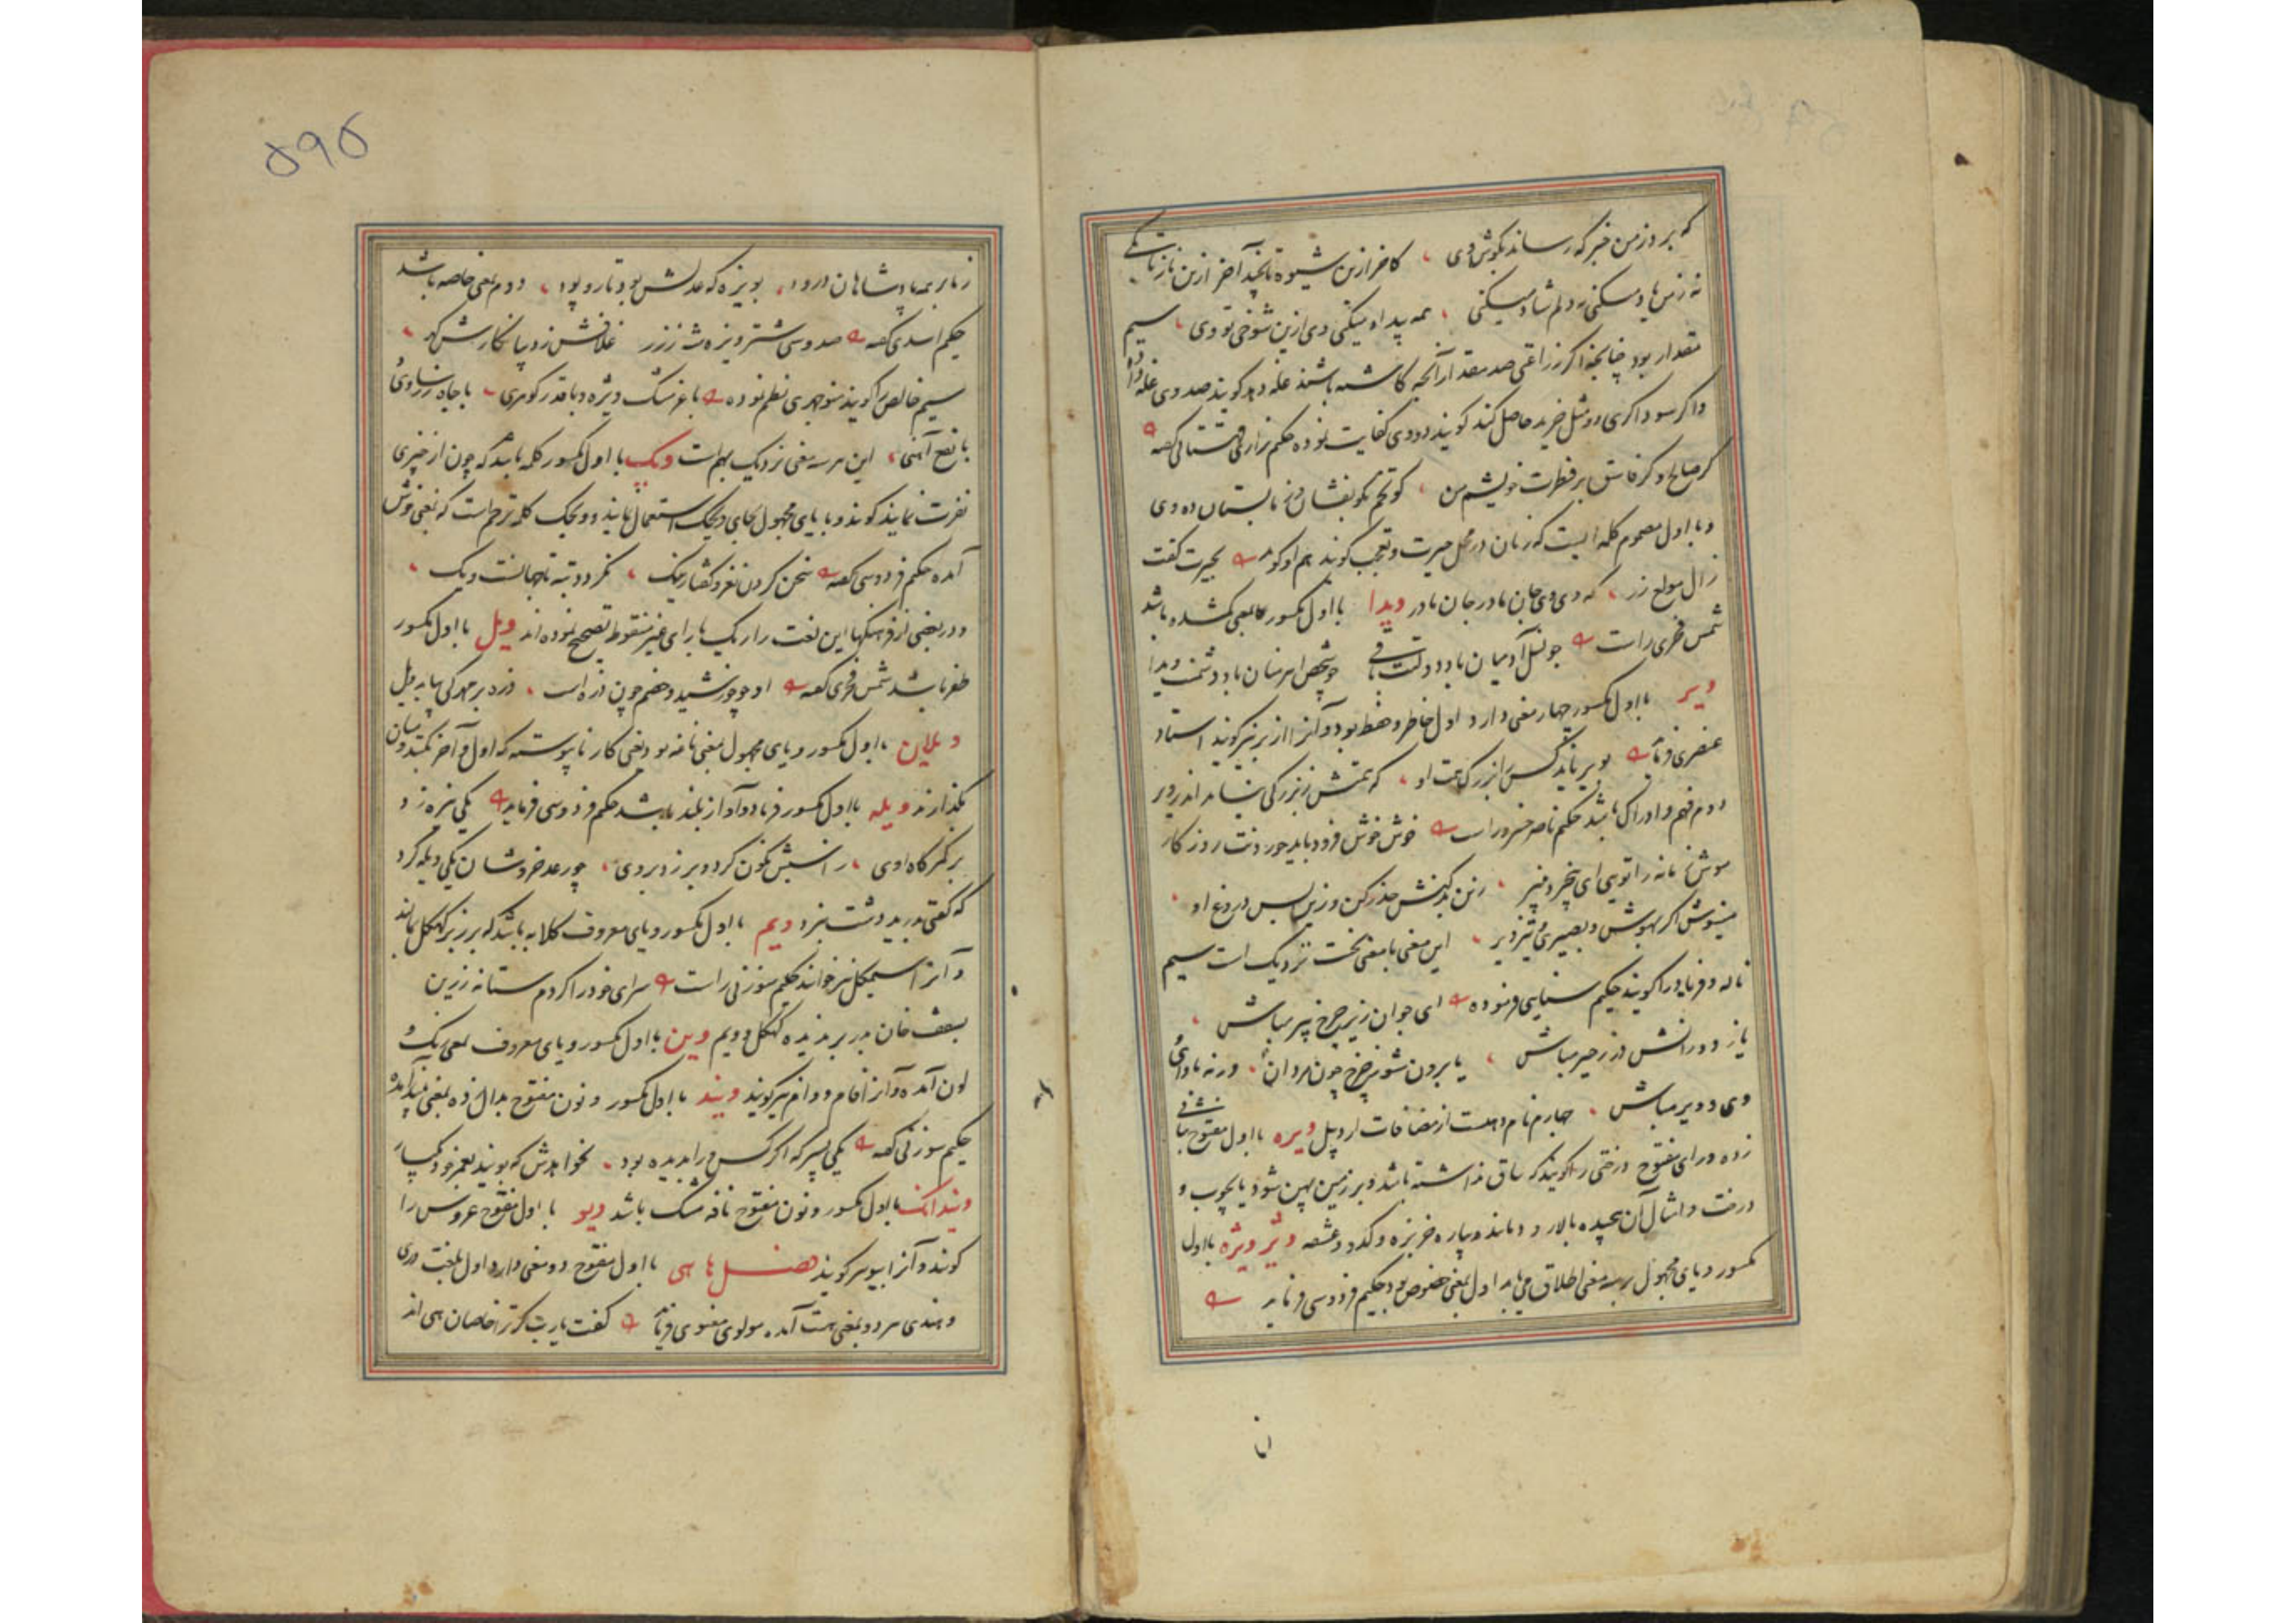 که برد ز من خبر که رساند بگوش وی ، کاخر ازین شیوه تا بچند آخر ازین ناز تا بکی
نه ز من یاد میکنی نه دلم شاد میکنی ، همه بیداد میکنی وی ازین شوخی تو وی ، سیم
مقدار بود چنانچه اگر زراعتی صد مقدار آنچه کاشته باشند غله دهد گویند صد وی غله داد
و اگر سوداگری دو مثل خرید حاصل کند گویند دو وی کفایت نموده حکیم نزاری قهستانی گفته
گر صالح و گر فاسق بر فطرت خویشم من ، گو تخم نکو بفشان وز ما بستان ده وی
و با اول مضموم کلمه ایست که زنان در محل حیرت و تعجب گویند هم او گوید بحیرت گفت
زال مولع زر ، که وی وی جان مادر جان مادر ویدا با اول مکسور بمعنی گم شده باشد
شمس فخری راست چو نسل آدمیان باد دولتت باقی چو شخص اهرمنان باد دشمنت ویدا
ویر با اول مکسور چهار معنی دارد اول خاطر و حفظ بود و آنرا از بر نیز گویند استاد
عنصری فرماید بویر ناید کس را بزرگ همت او ، که همتش ز بزرگی نیاید اندر ویر
دوم فهم و ادراک باشد حکیم ناصر خسرو راست خوش خوش فرود باید خوردنت روزگار
موش زمانه را تویی ای بیخبر پنیر ، زین بدکنش حذر کن و زین پس دروغ او ،
منیوش اگر بهوش و بصیری و تیزویر ، این معنی با معنی نخست نزدیک است سیم
ناله و فریاد را گویند حکیم سنایی فرموده ای جوان زیر چرخ پیر مباش ،
یا ز دورانش در زحیر مباش ، یا برون شو ز چرخ چون مردان ، ورنه با وای
وی و ویر مباش ، چهارم نام دهیست از مضافات اردبیل ویره با اول مفتوح بثانی
زده و رای مفتوح درختی را گویند که ساق نداشته باشد و بر زمین پهن شود یا بچوب و
درخت و امثال آن پیچیده بالا رود مانند بیاره خربزه و کدو و عشقه ویژ ویژه با اول
مکسور و یای مجهول بر سه معنی اطلاق می یابد اول بمعنی خصوص بود حکیم فردوسی فرماید
یا
۵۹۵
ز ما بر همه پادشاهان درود ، بویژه که عدلش بود تار و پود ، دوم بمعنی خاصه باشد
حکیم اسدی گفته صد و سی شتر ویژه شد زر غلافش زدیبا نگارش گهر ،
سیم خالص را گویند منوچهری نظم نموده با عز مشک ویژه و با قدر گوهری ، با جاه زر ساوی و
با نفع آهنی ، این هر سه معنی نزدیک بهم است ویک با اول مکسور کلمه باشد که چون از چیزی
نفرت نمایند گویند و با یای مجهول بجای ویحک استعمال نمایند و ویحک کلمه ترحم است که بمعنی خوش
آمده حکیم فردوسی گفته سخن کردن نغز و گفتار نیک ، نگردد تبه تا جهانست ویک ،
و در بعضی از فرهنگها این لغت را ریک با رای غیر منقوط تصحیح نموده اند ویل با اول مکسور
ظفر باشد شمس فخری گفته او چو خورشید و خصم چون ذره است ، ذره بر مهر کی بیابد ویل
ویلان با اول مکسور و یای مجهول بمعنی ناغه بود یعنی کار ناپیوسته که اول و آخر کنند و میان
بگذارند ویله با اول مکسور فریاد و آواز بلند باشد حکیم فردوسی فرماید یکی نیزه زد
بر کمرگاه اوی ، ز اسبش نگون کرد و بر زد بروی ، چو رعد خروشان یکی ویله کرد
که گفتی بدرید دشت نبرد ویم با اول مکسور و یای معروف گلابه باشد که بر زبر کهگل بمالند
و آنرا سیمگل نیز خوانند حکیم سوزنی راست سرای خود را کردم ستانه زرین
بسقف خان پدر بر ندیده کهگل و ویم وین با اول مکسور و یای معروف بمعنی رنگ و
لون آمده و آنرا فام و وام نیز گویند ویند با اول مکسور و نون مفتوح بدال زده بمعنی بیند آمده
حکیم سوزنی گفته یکی پسر که اگر کس ورا بدیده بود ، نخواهدش که بویند بعمر خود یکبار
وینداک با اول مکسور و نون مفتوح نافه مشک باشد ویو با اول مفتوح عروس را
گویند و آنرا بیو نیز گویند فصل ها هی با اول مفتوح دو معنی دارد اول بلغت دری
و هندی هر دو بمعنی هست آمده مولوی معنوی فرماید گفت یارب گر ترا خاصان هی اند